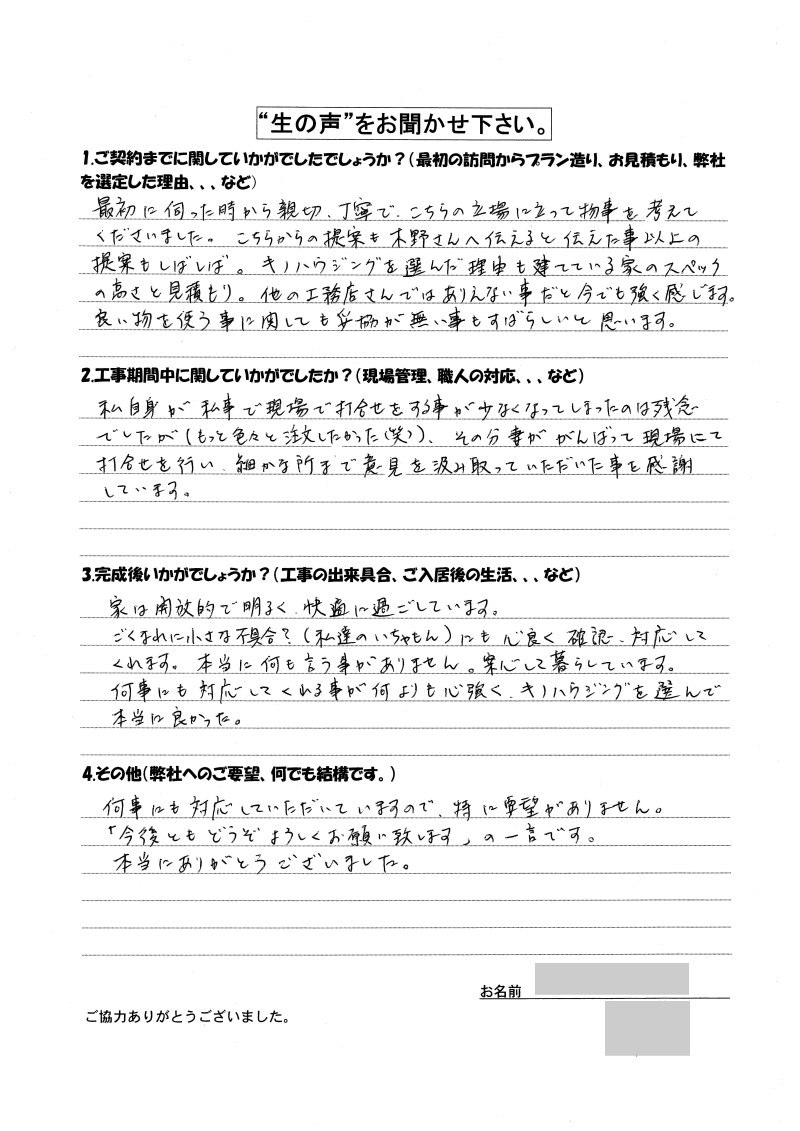 “生の声”をお聞かせ下さい。
1.ご契約までに関していかがでしたでしょうか？(最初の訪問からプラン造り、お見積もり、弊社
を選定した理由、、、など)
最初に伺った時から親切、丁寧で、こちらの立場に立って物事を考えて
くださいました。こちらからの提案も木野さんへ伝えると伝えた事以上の
提案もしばしば。キノハウジングを選んだ理由も建てている家のスペック
の高さと見積もり。他の工務店さんではありえない事だと今でも強く感じます。
良い物を使う事に関しても妥協が無い事もすばらしいと思います。
2.工事期間中に関していかがでしたか？(現場管理、職人の対応、、、など)
私自身が私事で現場で打合せをする事が少なくなってしまったのは残念
でしたが(もっと色々と注文したかった(笑))、その分妻ががんばって現場にて
打合せを行い、細かな所まで意見を汲み取っていただいた事を感謝
しています。
3.完成後いかがでしょうか？(工事の出来具合、ご入居後の生活、、、など)
家は開放的で明るく、快適に過ごしています。
ごくまれに小さな不具合？(私達のいちゃもん)にも心良く確認、対応して
くれます。本当に何も言う事がありません。案心して暮らしています。
何事にも対応してくれる事が何よりも心強く、キノハウジングを選んで
本当に良かった。
4.その他(弊社へのご要望、何でも結構です。)
何事にも対応していただいていますので、特に要望がありません。
「今後ともどうぞよろしくお願い致します」の一言です。
本当にありがとうございました。
お名前
ご協力ありがとうございました。